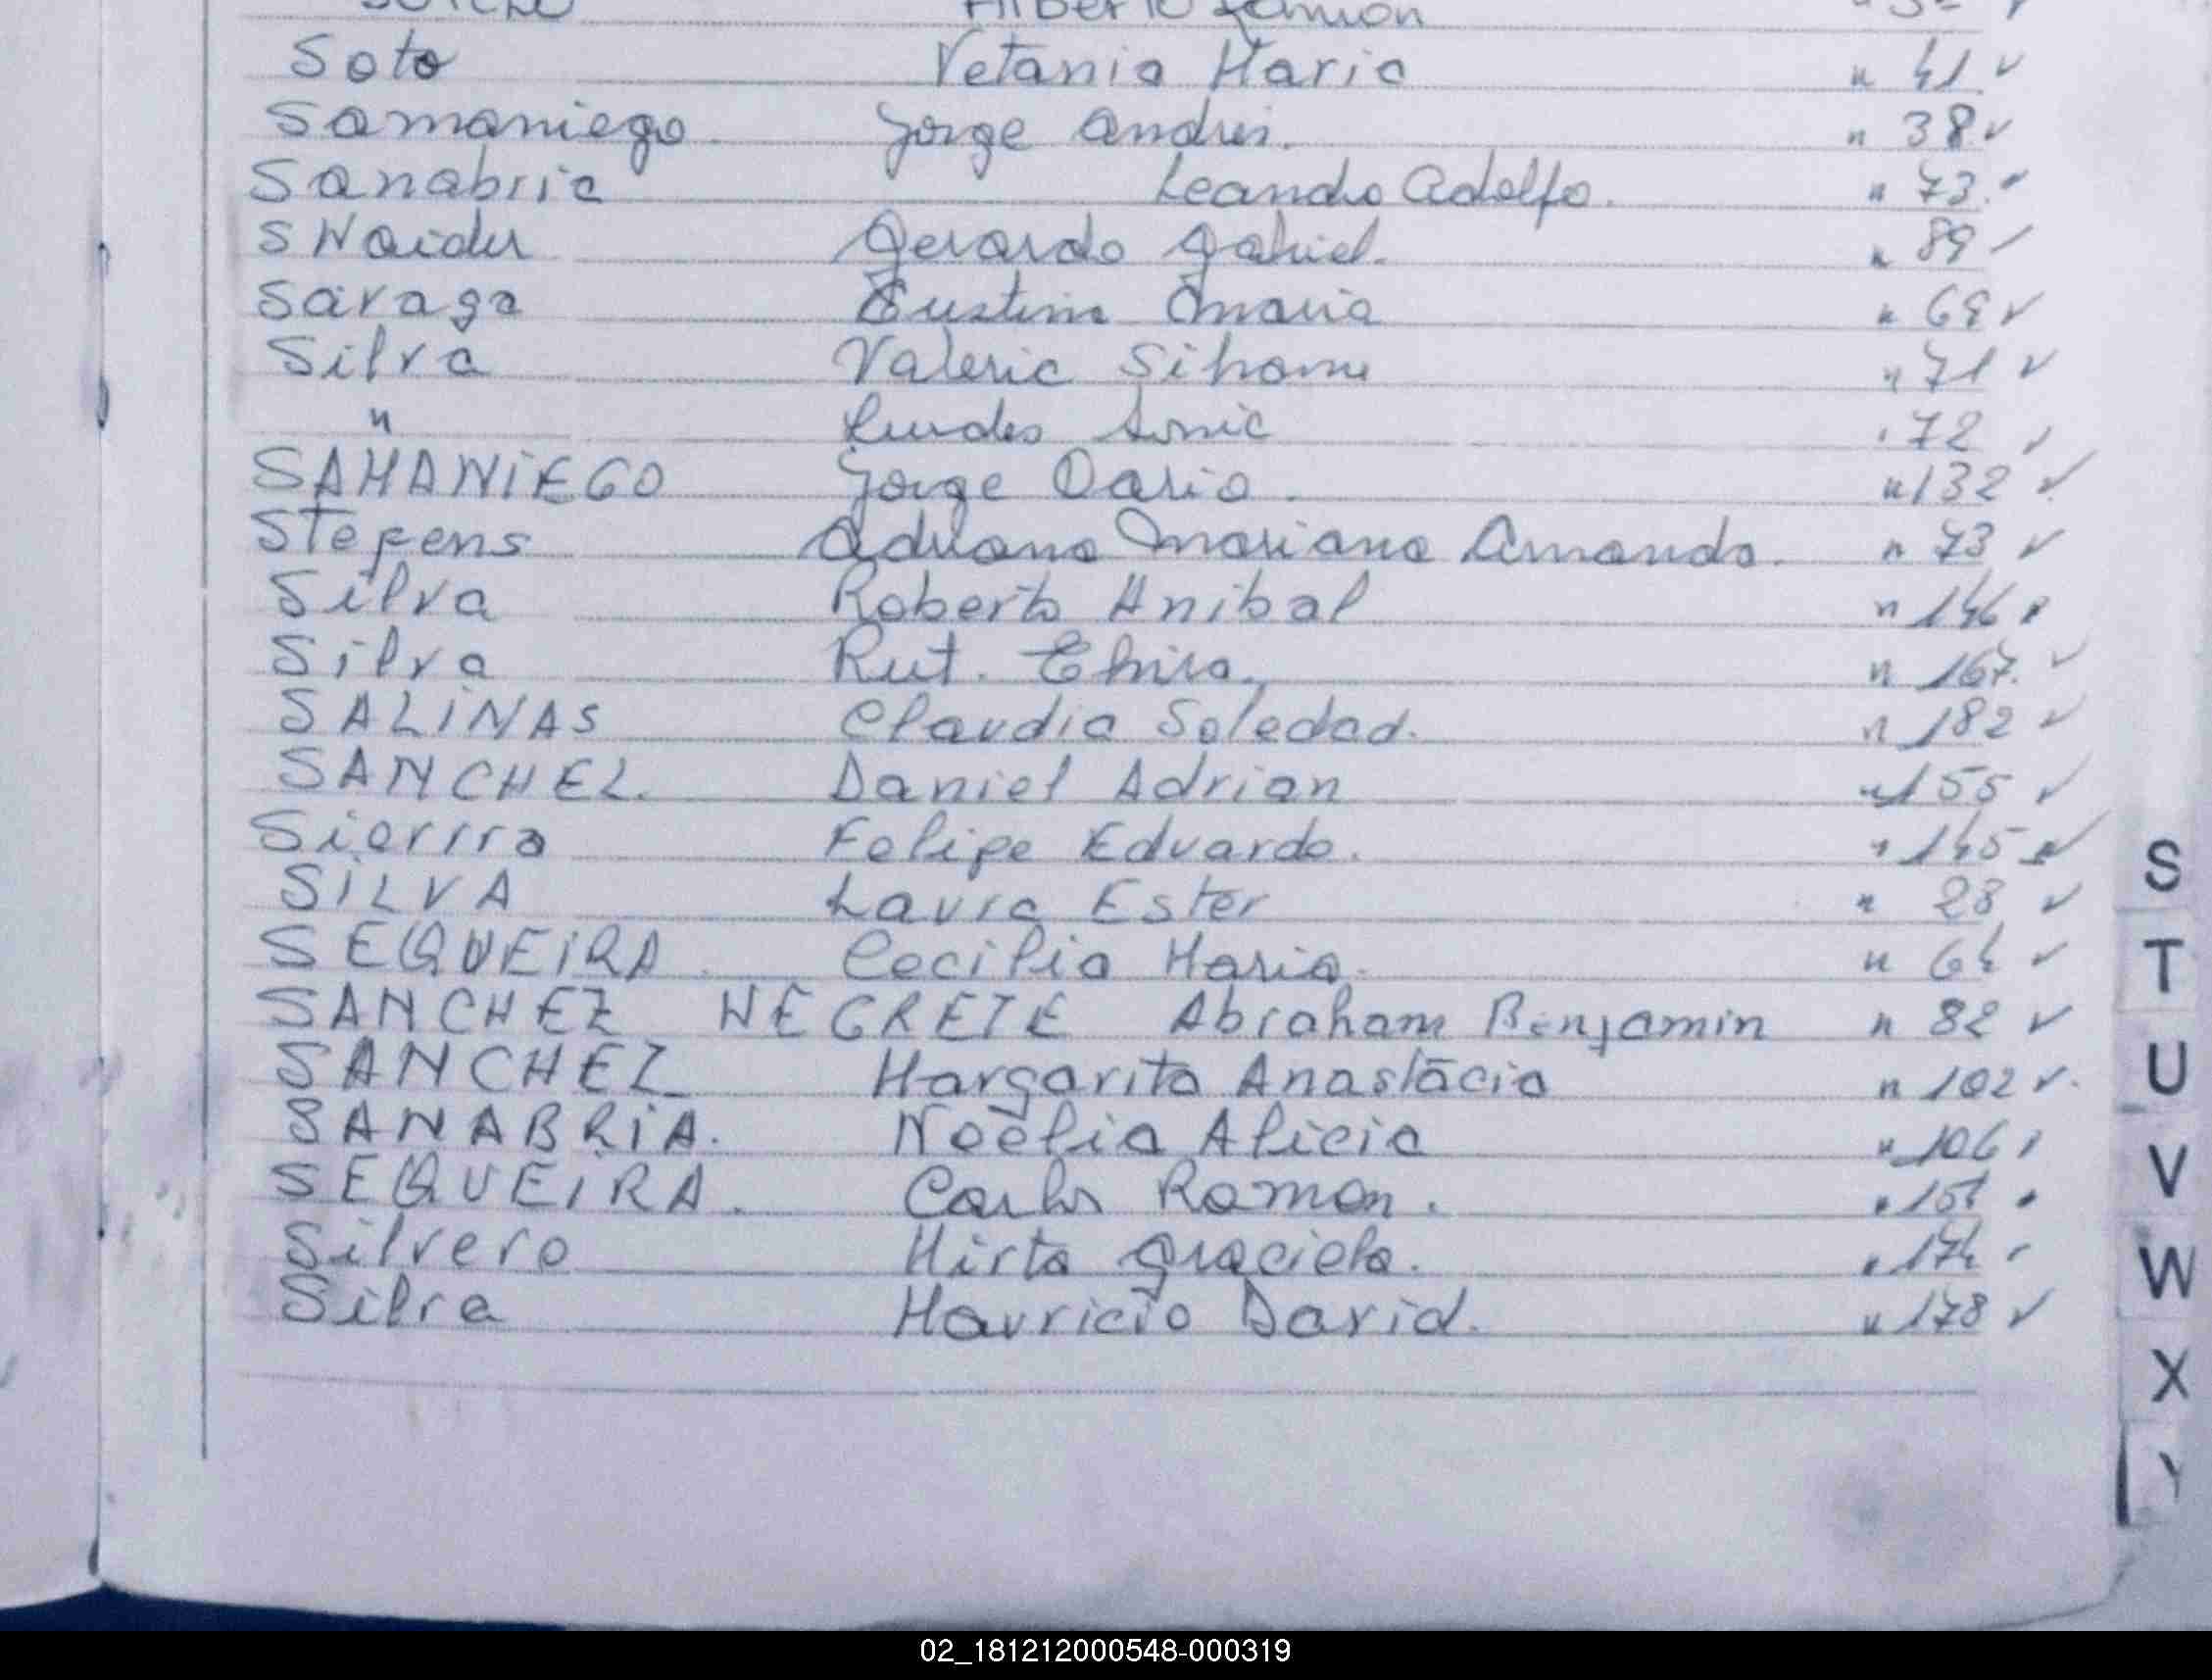 Alberto Ramón
Soto Vetania Maria " 41 ✓
Samaniego Jorge Andres. " 38 ✓
Sanabria Leandro Adolfo. " 73.
SNaider Gerardo Gabriel. " 89
Saraga Eustina Maria " 69 ✓
Silva Valeria Sihome " 71 ✓
" Lurdes Sonia " 72
SAMANIEGO Jorge Dario. " 132 ✓
Stefens Adriana Mariana Amanda. " 73 ✓
Silva Roberto Anibal " 146
Silva Rut. Elvira. " 167. ✓
SALINAS Claudia Soledad. " 182 ✓
SANCHEZ. Daniel Adrian " 155 ✓
Sierra Felipe Eduardo. " 145 ✓
SILVA Laura Ester " 28 ✓
SEQUEIRA. Cecilia Maria. " 64 ✓
SANCHEZ NEGRETE Abraham Benjamin " 82 ✓
SANCHEZ Margarita Anastācia " 102 ✓
SANABRIA. Noelia Alicia " 106
SEQUEIRA. Carlos Ramon. " 151
Silvero Mirta Graciela. " 174
Silva Mauricio David. " 178 ✓
S
T
U
V
W
X
Y
02_181212000548-000319